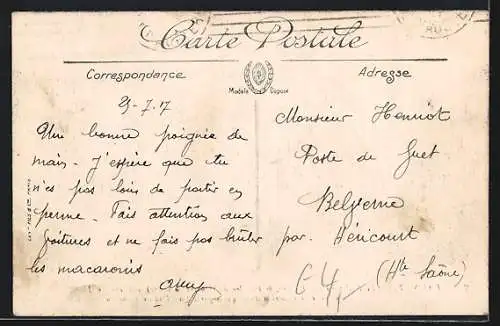 Carte Postale
Correspondance
Adresse
Modèle Déposé
29-7.17
Une bonne poignée de
main - J'espère que tu
n'es pas loin de partir en
perme - Fais attention aux
voitures et ne fais pas brûler
les macaronis
Monsieur Henriot
Poste de Guet
Belverne
par. Héricourt
(Hte Saône)